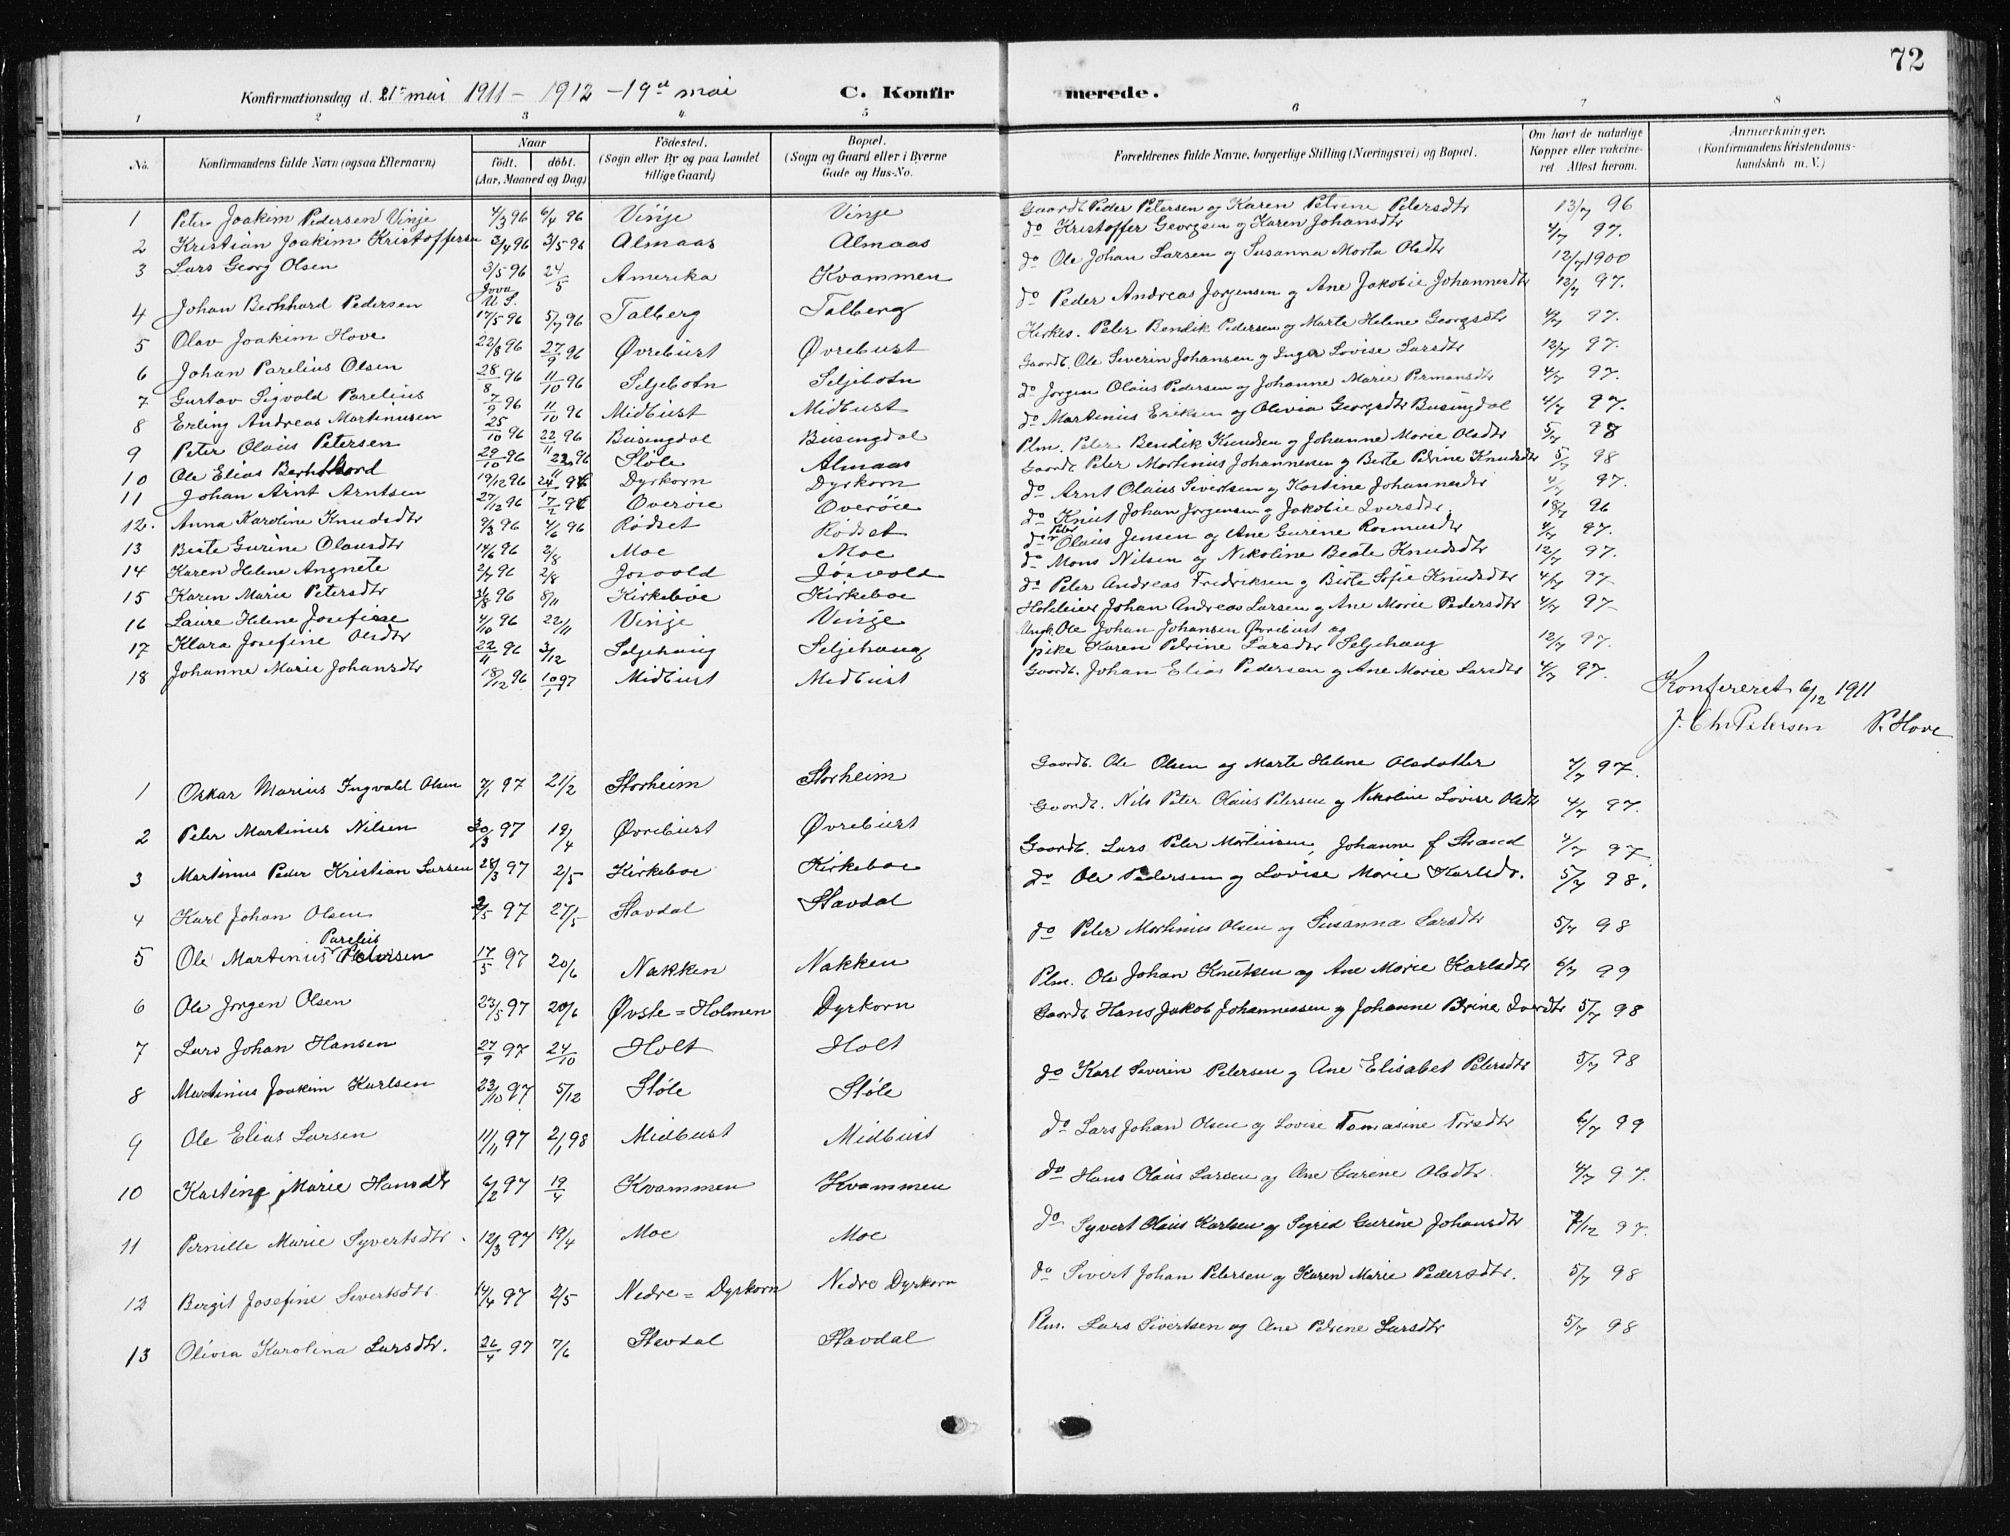 72
Konfirmationsdag d. 21de mai 1911 - 1912 - 19de mai C. Konfirmerede.
1 2 3 4 5 6 7 8
No. Konfirmandens fulde Navn (ogsaa Efternavn) Naar født. døbt. (Aar, Maaned og Dag) Fødested. (Sogn eller By og paa Landet tillige Gaard) Bopæl. (Sogn og Gaard eller i Byerne Gade og Hus-No. Forældrenes fulde Navne, borgerlige Stilling (Næringsvei) og Bopæl. Om havt de naturlige Kopper eller vakcineret Attest herom. Anmærkninger. (Konfirmandens Kristendomskundskab m. V.)
1 Peter Joakim Pedersen Vinje 4/3 96 6/4 96 Vinje Vinje Gaardb. Peder Petersen og Karen Petrine Petersdtr 13/7 96
2 Kristian Joakim Kristoffersen 3/4 96 3/5 96 Almaas Almaas do Kristoffer Georgsen og Karen Johansdtr 4/7 97.
3 Lars Georg Olsen 3/5 96 Iova U.S. 24/5 Amerika Kvammen do Ole Johan Larsen og Susanna Marta Olsdtr 12/7 1900
4 Johan Bernhard Pedersen 17/5 96 5/7 96 Talberg Talberg do Peder Andreas Jørgensen og Ane Jakobie Johannesdtr 12/7 97.
5 Olav Joakim Hove 22/8 96 27/9 96 Øvrebust Øvrebust Kirkes. Peter Bendik Pedersen og Marte Helene Georgsdtr 4/7 97.
6 Johan Parelius Olsen 28/8 96 11/10 96 Seljebotn Seljebotn Gaardb. Ole Severin Johansen og Inger Lovise Larsdtr 12/7 97.
7 Gustav Sigvald Parelius 7/9 96 11/10 96 Midbust Midbust do Jørgen Olaus Pedersen og Johanne Marie Permansdtr 4/7 97.
8 Erling Andreas Martinusen 25/10 96 22/11 96 Busengdal Busengdal do Martinus Eriksen og Olivia Georgsdtr Busingdal 4/7 97.
9 Peter Olaus Petersen 29/10 96 22/11 96 Støle Almaas Plm. Peter Bendik Knudsen og Johanne Marie Olsdtr 5/7 98
10 Ole Elias Bernhard 19/12 96 Dyrkorn Dyrkorn Gaardb. Peter Martinus Johannesen og Berte Petrine Knudsdtr 5/7 98
11 Johan Arnt Arntsen 27/12 96 Overøie Overøie do Arnt Olaus Sivertsen og Kastine Johannesdtr 4/7 97.
12. Anna Karoline Knudsdtr 9/3 96 4/6 96 Rødset Rødset do Knut Johan Jørgensen og Jakobie Iversdtr. 18/7 96
13 Beate Gurine Olausdtr 14/6 96 2/8 Moe Moe do Peter Olaus Jensen og Ane Gurine Rasmusdtr 4/7 97.
14 Karen Helene Angnete 2/7 96 2/8 Josvold Jøsvold do Mons Nilsen og Nikoline Beate Knudsdtr 12/7 97.
15 Karen Marie Petersdtr 31/8 96 8/11 Kirkeboe Kirkeboe do Peter Andreas Fredriksen og Birte Sofie Knudsdtr 4/7 97
16 Laure Helene Josefiese 4/10 96 22/11 Vinje Vinje Holdeier Johan Andreas Larsen og Ane Marie Pedersdtr 4/7 97
17 Klara Josefine Olsdtr 22/11 96 3/12 Seljehaug Seljehaug Ungk. Ole Johan Johansen Øvrebust og pike Karen Petrine Larsdtr Seljehaug 12/7 97.
18 Johanne Marie Johansdtr 18/12 96 10/1 97 Midbust Midbust Gaardb. Johan Elias Pedersen og Ane Marie Larsdtr 4/7 97.
Konfereret 6/12 1911
J. Chr Petersen P. Hove
1 Oskar Marius Ingvald Olsen 7/1 97 21/2 Storheim Storheim Gaardb. Ole Olsen og Marte Helene Olsdatter 4/7 97.
2 Peter Martinus Nilsen 30/3 97 19/4 Øvrebust Øvrebust Gaardb. Nils Peter Olaus Petersen og Nikoline Lovise Olsdtr 4/7 97.
3 Martinus Peder Kristian Larsen 28/3 97 2/5 Kirkeboe Kirkeboe Gaardb. Lars Peter Martinusen, Johanne f Strand 4/7 97.
4 Karl Johan Olsen 2/5 97 27/5 Stavdal Stavdal do Ole Pedersen og Lovise Marie Karlsdr. 5/7 98.
5 Ole Martinus Parelius Petersen 17/5 97 20/6 Nakken Nakken do Peter Martinus Olsen og Susanna Larsdtr 5/7 98
6 Ole Jørgen Olsen 23/5 97 20/6 Øvste = Holmen Dyrkorn Plm. Ole Johan Knutsen og Ane Marie Karlsdtr 6/7 99
7 Lars Johan Hansen 27/9 97 24/10 Holt Holt Gaardb. Hans Jakob Johannessen og Johanne Berine Iversdtr 5/7 98
8 Martinus Joakim Karlsen 23/10 97 5/12 Støle Støle do Karl Severin Petersen og Ane Elisabet Petersdtr 5/7 98
9 Ole Elias Larsen 11/11 97 2/1 98 Midbust Midbust do Lars Johan Olsen og Lovise Tomasine Torsdtr 6/7 99
10 Kastine Marie Hansdtr 6/2 97 19/4 Kvammen Kvammen do Hans Olaus Larsen og Ane Gurine Olsdtr. 4/7 97.
11 Pernille Marie Syvertsdtr. 12/3 97 19/4 Moe Moe do Syvert Olaus Karlsen og Sigrid Gurine Johansdtr 7/12 97.
12 Bergit Josefine Sivertsdtr. 14/4 97 2/5 Nedre = Dyrkorn Nedre Dyrkorn do Sivert Johan Petersen og Karen Marie Pedersdtr. 5/7 98
13 Olivia Karolina Larsdtr. 26/4 97 7/6 Stavdal Stavdal Plm. Lars Sivertsen og Ane Petrine Larsdtr 5/7 98